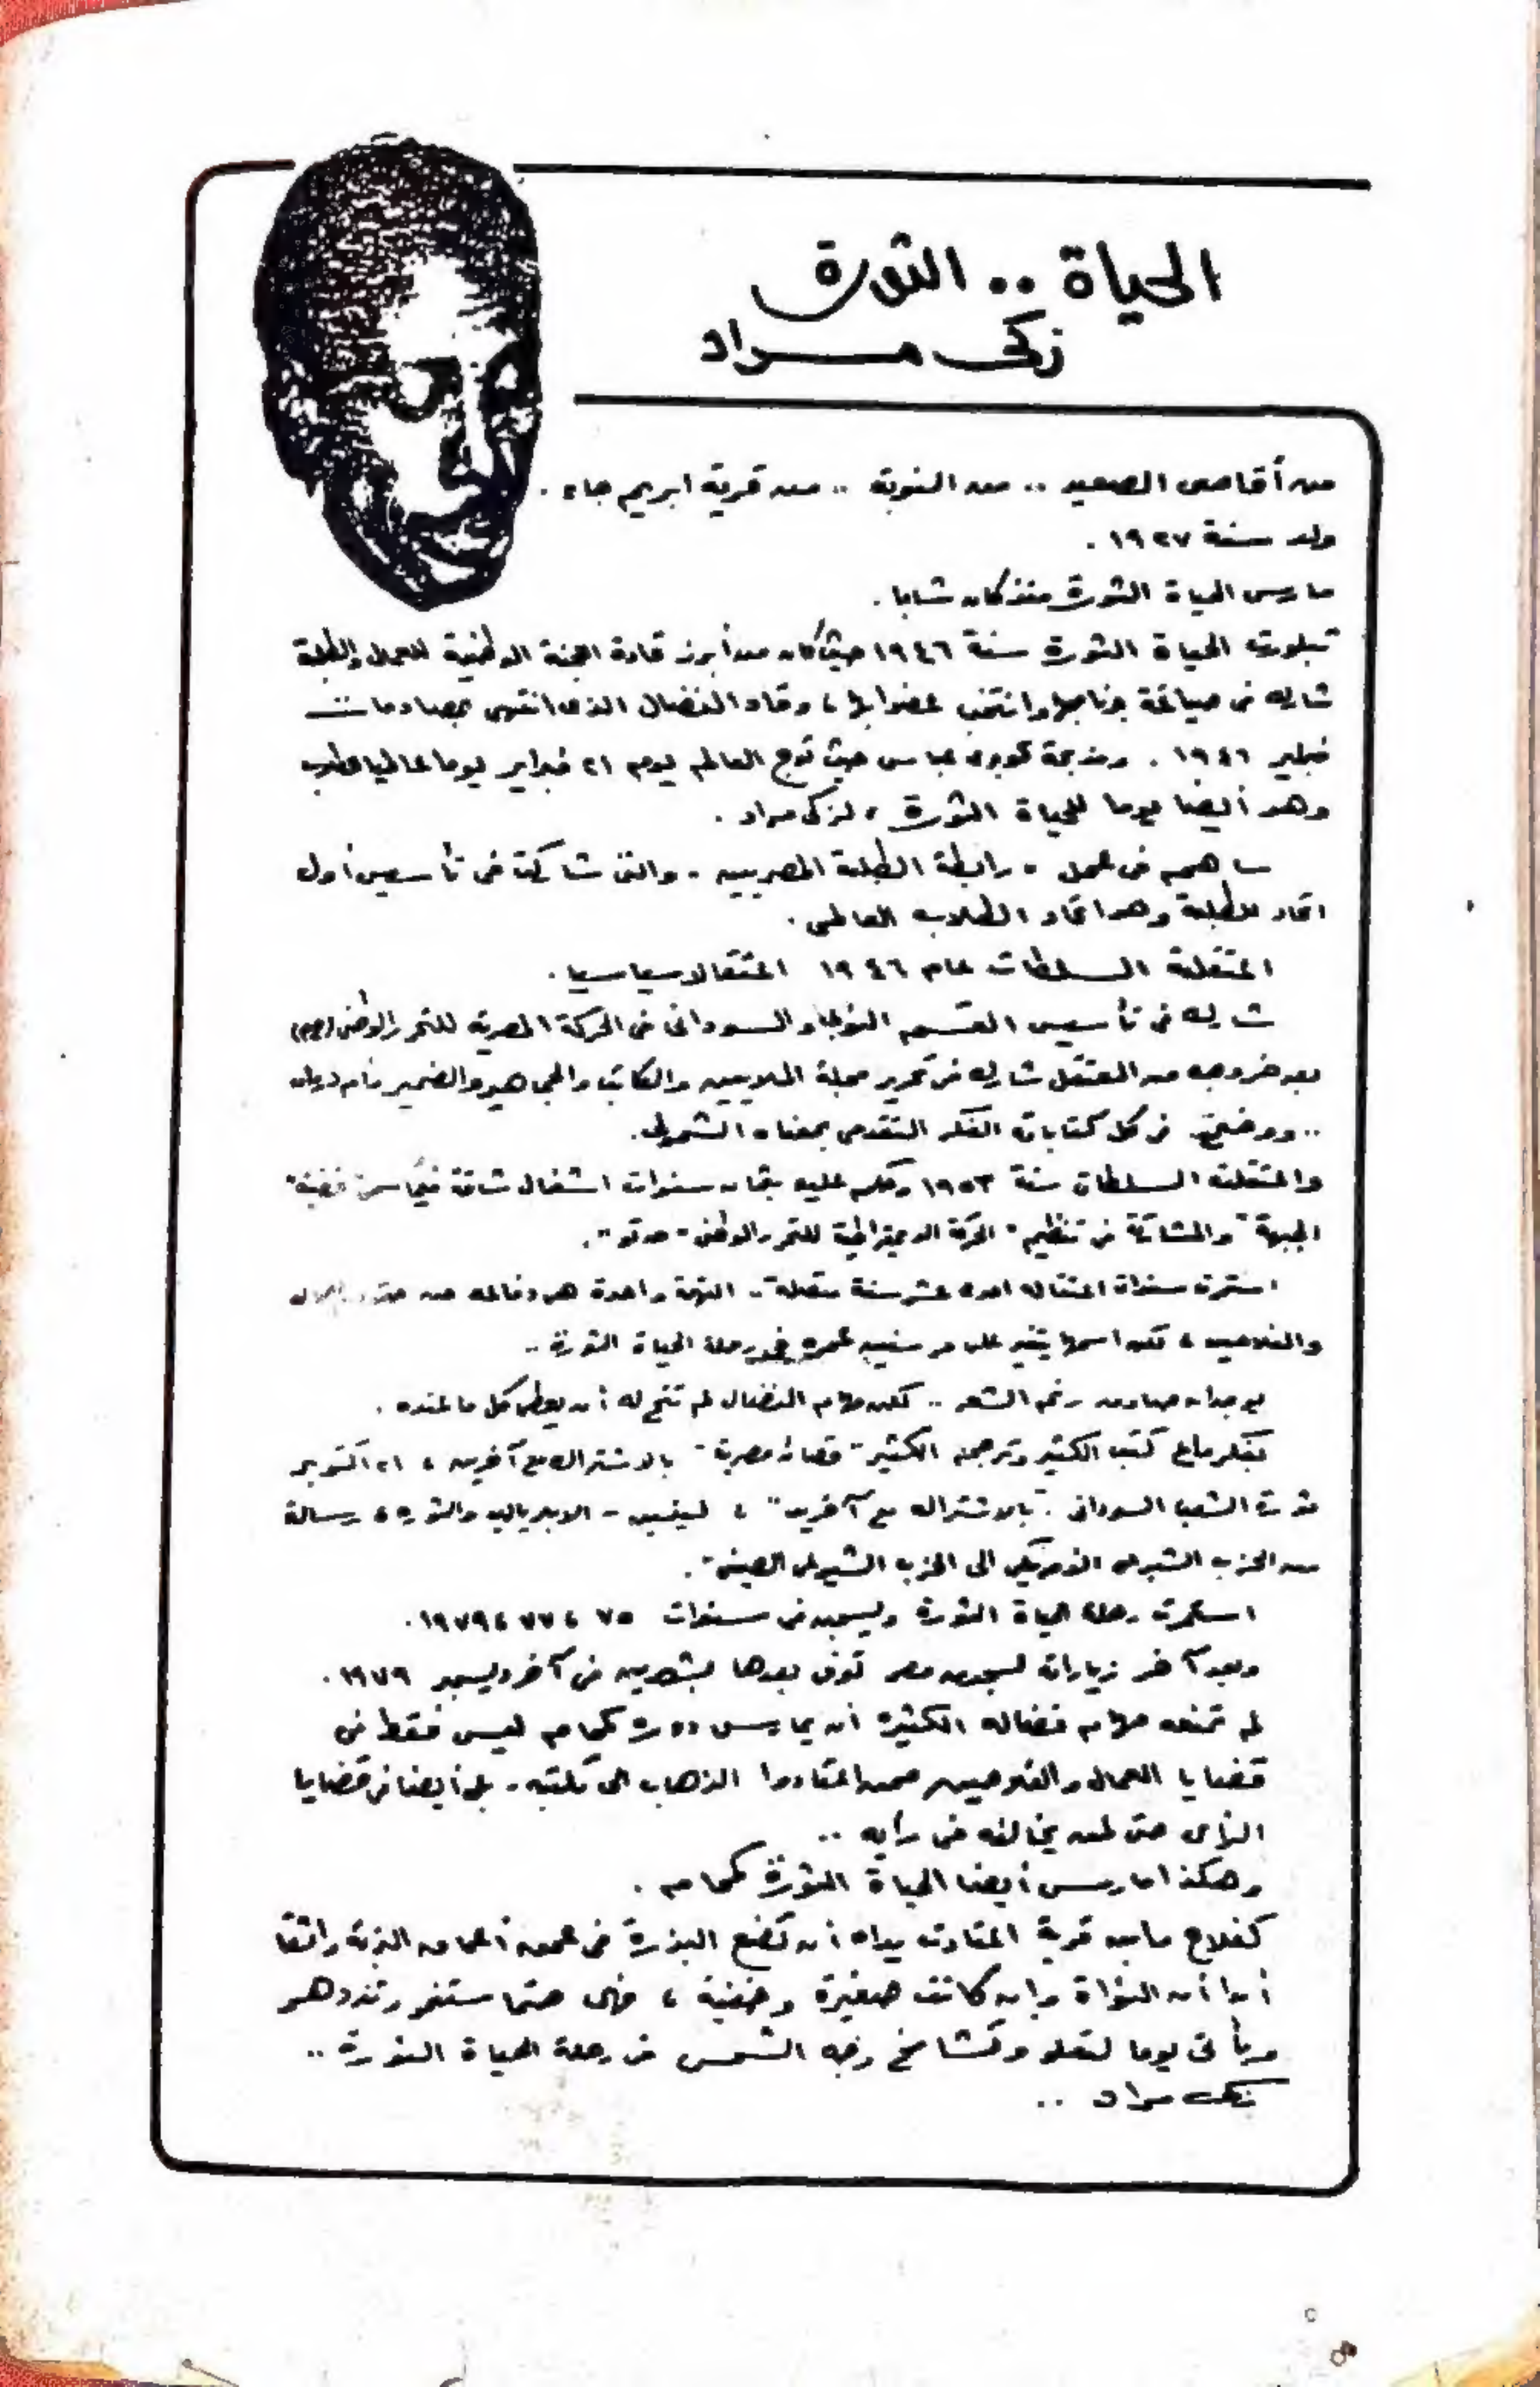 الحياة .. الثورة
زكى مراد
من أقاصى الصعيد .. من النوبة .. من قرية ابريم جاء .
ولد سنة ١٩٢٧ .
مارس الحياة الثورة منذ كان شابا .
تبلورت الحياة الثورة سنة ١٩٤٦ حيث كان من أبرز قادة اللجنة الوطنية للعمال والطلبة
شارك فى صياغة برنامجها وانتخب عضوا بها ، وقاد النضال الذى انتهى بصدامات
فبراير ١٩٤٦ . ومذبحة كوبرى عباس حيث توج العالم يوم ٢١ فبراير يوما عالميا للطلاب
وهو أيضا يوما للحياة الثورة ، لزكى مراد .
ساهم فى عمل - رابطة الطلبة المصريين - والتى شاركت فى تأسيس أول
اتحاد للطلبة وهو اتحاد الطلاب العالمى .
اعتقلته السلطات عام ١٩٤٦ اعتقالا سياسيا .
شارك فى تأسيس القسم النوبى والسودانى فى الحركة المصرية للتحرر الوطنى
بعد خروجه من المعتقل شارك فى تحرير مجلة الملايين والكاتب والجماهير والضمير وأم درمان
.. ووضحت فى كل كتاباته الفكر التقدمى بمعناه الشمولى .
واعتقلته السلطات سنة ١٩٥٣ وحكم عليه بثمان سنوات اشغال شاقة فيما سمى قضية "
الجبهة " والمشاركة فى تنظيم " الحركة الديمقراطية للتحرر الوطنى - حدتو " .
استمرت سنوات اعتقاله احدى عشر سنة متصلة .. التهمة واحدة هى دفاعه عن حقوق العمال
والفلاحين ، لكن اسمها يتغير على مر سنين عمره فى رحلة الحياة الثورة ..
بوجدان صادق رغم الشعر .. لكن مهام النضال لم تتح له أن يعطى كل ما عنده .
بفكر كتب الكثير وترجم الكثير - قصائد مصرية - بالاشتراك مع آخرين ، ٢١ اكتوبر
ثورة الشعب السودانى . " بالاشتراك مع آخرين " ، لينين - الامبريالية والثورة ، رسالة
من الحزب الشيوعى الامريكى الى الحزب الشيوعى الصينى " .
استمرت رحلة الحياة الثورة وليسجن فى سنوات ٧٥ ، ٧٧ ، ١٩٧٩ .
وبعد آخر زياراته لسجون مصر توفى بعدها بشهرين فى آخر ديسمبر ١٩٧٩ .
لم تمنعه مهام نضاله الكثيرة أن يمارس دوره كمحام ليس فقط فى
قضايا العمال والفلاحين ممن اعتادوا الذهاب الى مكتبه - بل أيضا فى قضايا
الرأى حتى لمن يخالفه فى رأيه ..
وهكذا مارس أيضا الحياة الثورة كمحام .
كفلاح قرية اعتادت يداه أن تضع البذرة فى عمق أعماق التربة واثقا
أبدا أن النواة وان كانت صغيرة وخفية ، فهى حتما ستنمو وتزدهر
ويأتى يوما لتعلو وتشامخ وجه الشمس فى رحلة الحياة الثورة ..
زكى مراد ..